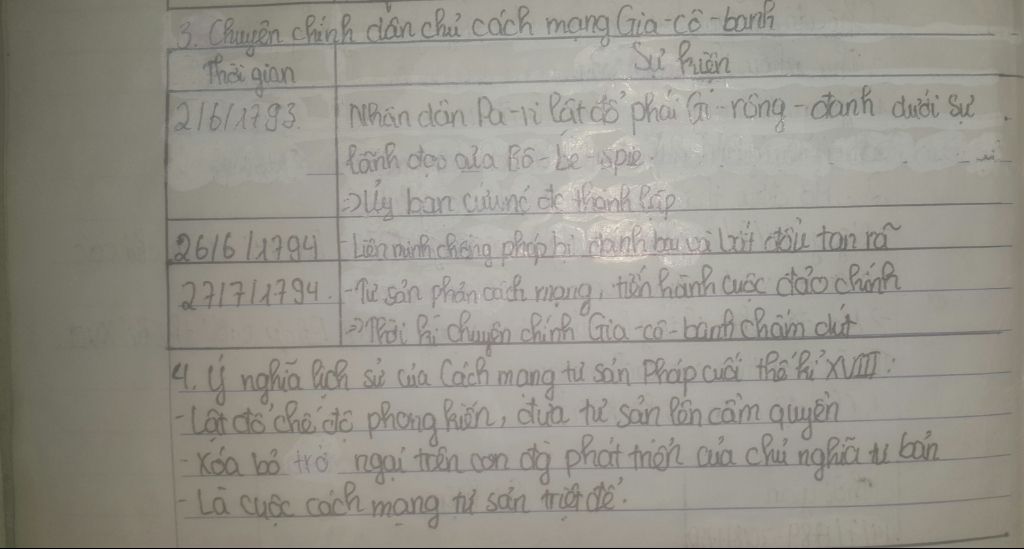 3. Chuyên chính dân chủ cách mạng Gia-cô-banh
Thời gian
Sự kiện
2/6/1793.
Nhân dân Pa-ri lật đổ phái Gi-rông-đanh dưới sự
lãnh đạo của Rô-be-spie.
=> Ủy ban cứu nc đc thành lập
26/6/1794
-Liên minh chống pháp bị đánh bại và bắt đầu tan rã
27/7/1794.
-Tư sản phản cách mạng, tiến hành cuộc đảo chính
=> Thời kì chuyên chính Gia-cô-banh chấm dứt
4. Ý nghĩa lịch sử của Cách mạng tư sản Pháp cuối thế kỉ XVIII:
-Lật đổ chế độ phong kiến, đưa tư sản lên cầm quyền
-Xóa bỏ trở ngại trên con đg phát triển của chủ nghĩa tư bản
-Là cuộc cách mạng tư sản triệt để.